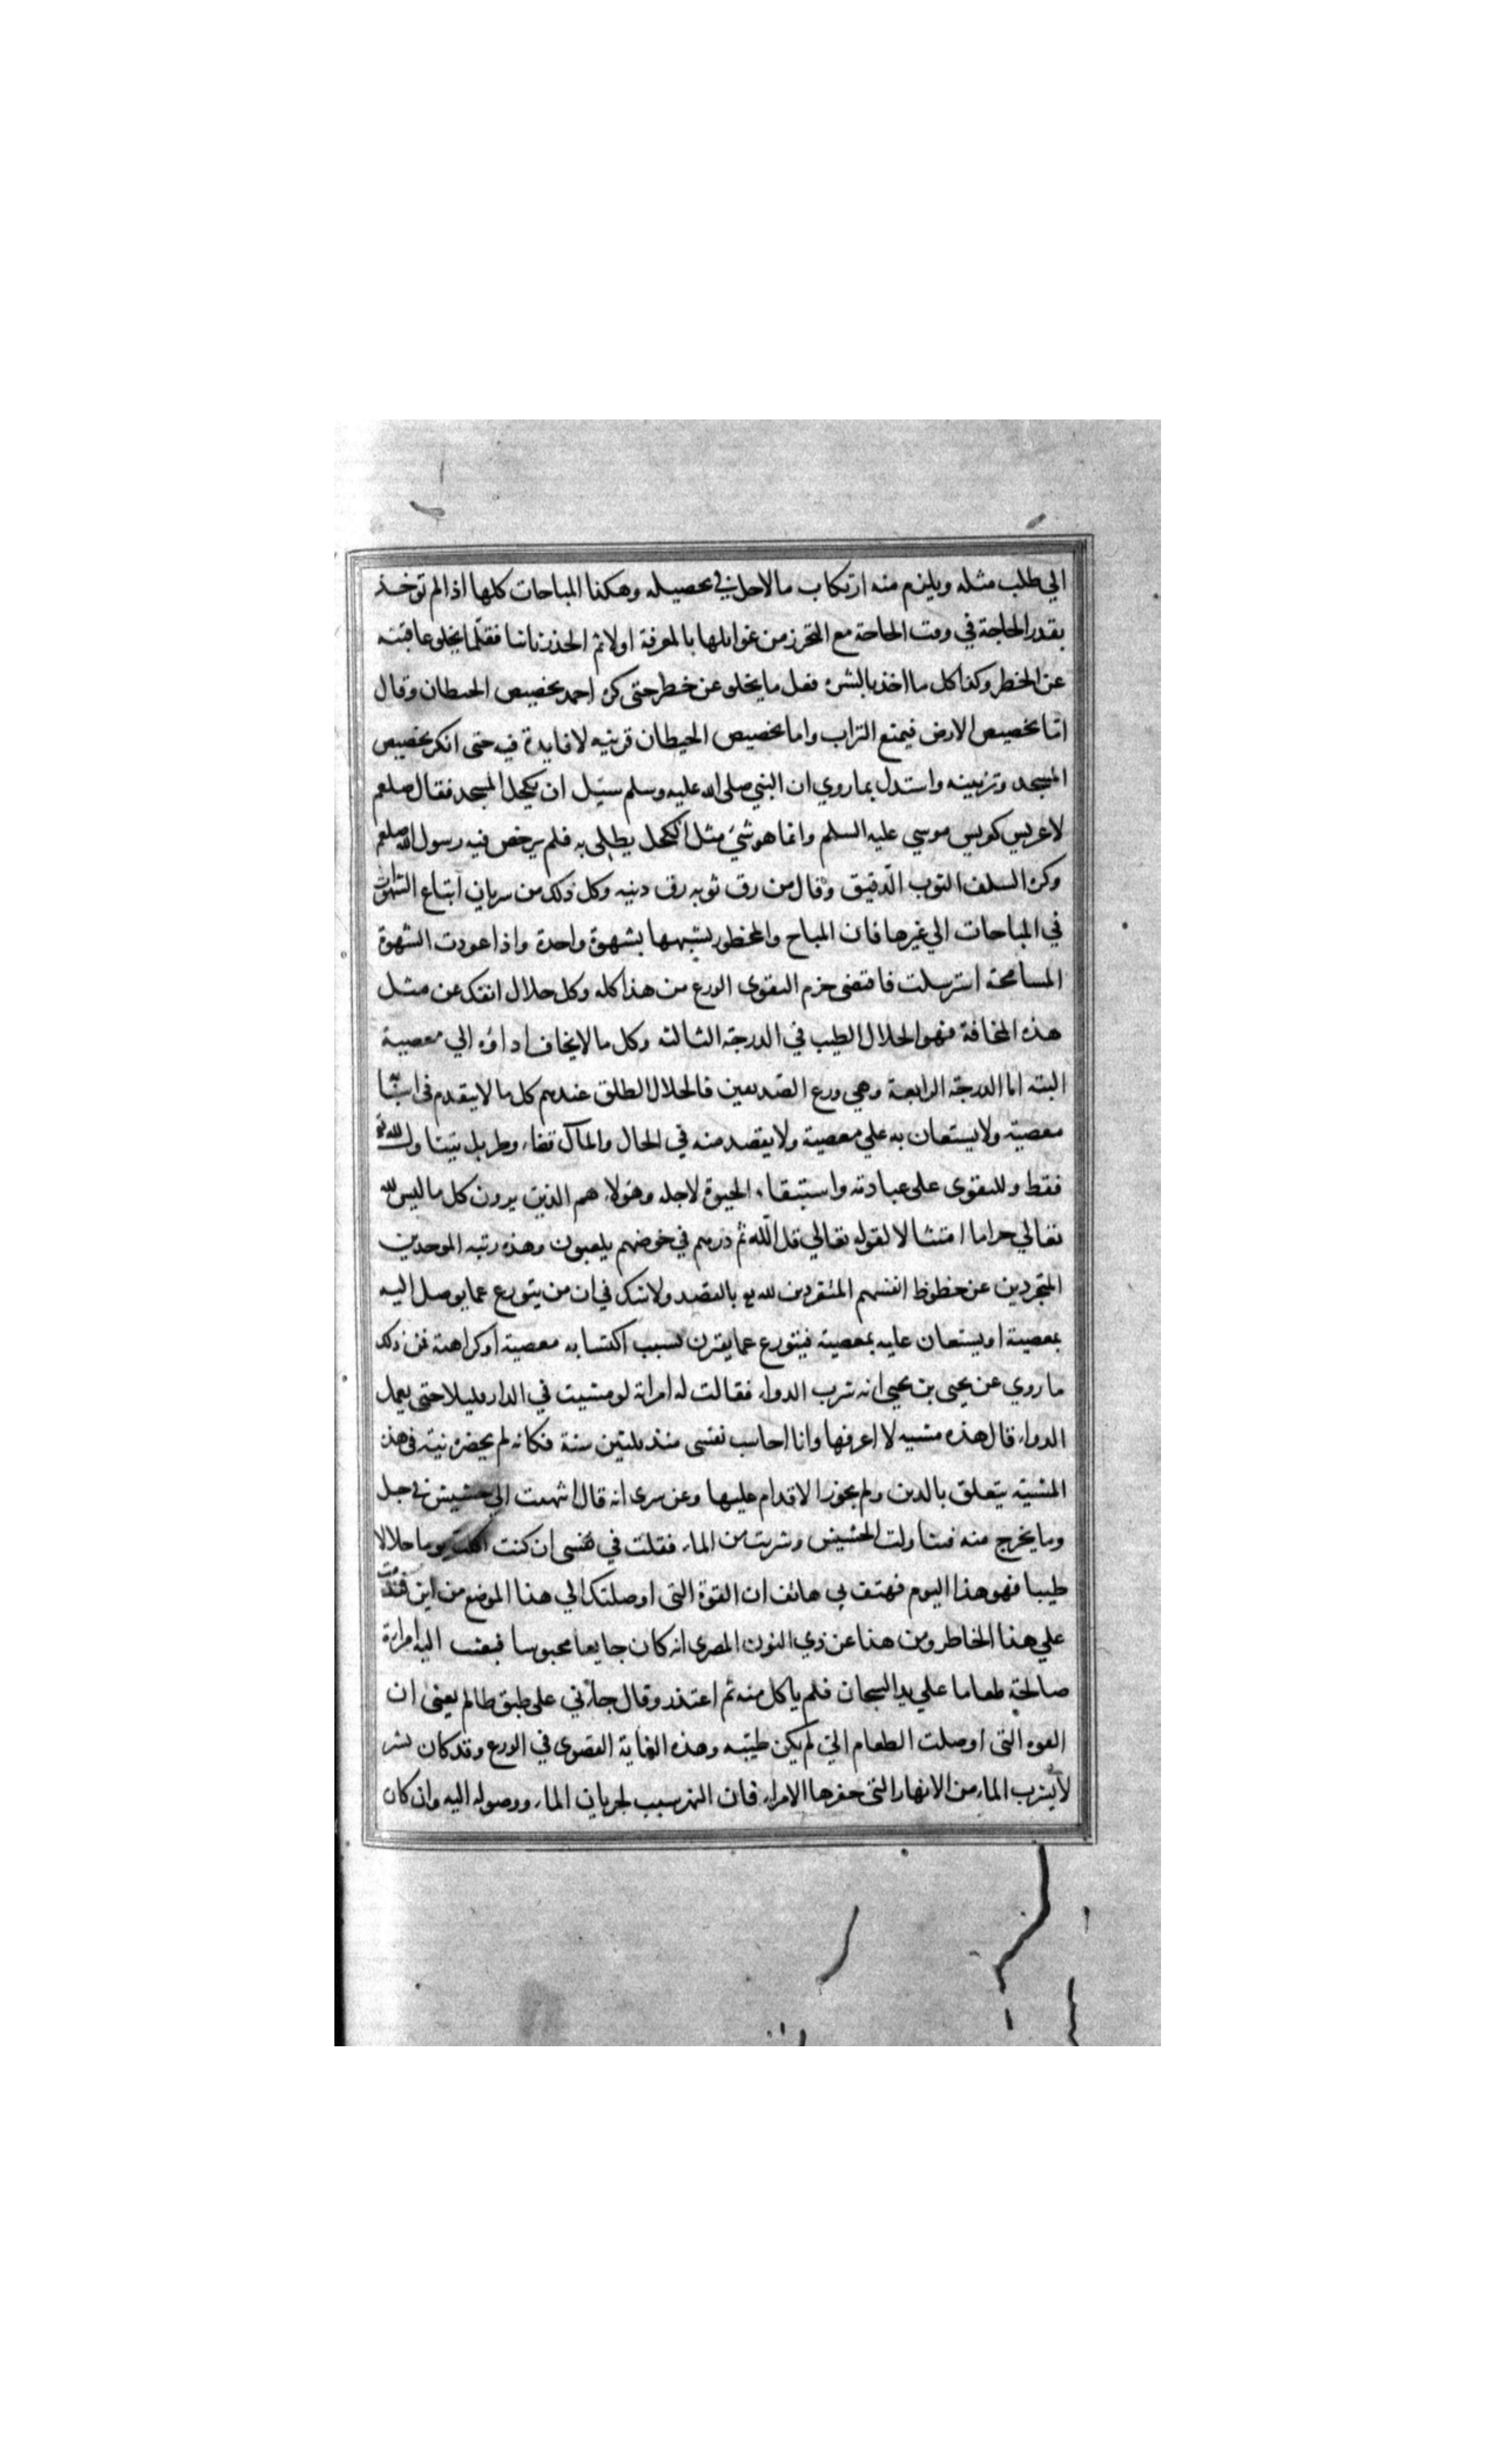 الي طلب مثله ويلزم منه ارتكاب مالا حل في تحصيله وهكذا المباحات كلها اذا لم توخذ
بقدر الحاجة في وقت الحاجة مع التحرز من غوايلها بالمعرفة اولا ثم الحذر ثانيا فقلما يخلو عاقبته
عن الخطر وكذا كل ما اخذ بالشره فقل ما يخلو عن خطر حتى كره احمد تجصيص الحيطان وقال
اما تجصيص الارض فيمنع التراب واما تجصيص الحيطان فزينه لا فايدة فيه حتى انكر تجصيص
المسجد وتزيينه واستدل بما روي ان النبي صلى الله عليه وسلم سئل ان يكحل المسجد فقال صلعم
لا عريس كعريس موسي عليه السلم وانما هو شئ مثل الكحل يطلى به فلم يرخص فيه رسول الله صلعم
وكره السلف الثوب الدقيق وقال من رق ثوبه رق دينه وكل ذلك من سريان اتباع الشهوات
في المباحات الي غيرها فان المباح والمحظور يشبهها بشهوة واحدة واذا عودت الشهوة
المسامحة استرسلت فاقتضى حزم التقوى الورع من هذا كله وكل حلال انفك عن مثل
هذه المخافة فهو الحلال الطيب في الدرجة الثالثه وكل ما لا يخاف اداؤه الي معصية
البته اما الدرجة الرابعة وهي ورع الصديقين فالحلال الطلق عندهم كل ما لا يتقدم في اسبابه
معصية ولا يستعان به علي معصية ولا يقصد منه في الحال والمآل قضاء وطر بل يتناول لله تعالى
فقط وللتقوى على عبادته واستبقاء الحيوة لاجله وهولاء هم الذين يرون كل ما ليس لله
تعالي حراما امتثالا لقوله تعالي قل الله ثم ذرهم في خوضهم يلعبون وهذه رتبه الموحدين
المتجردين عن حظوظ انفسهم المنفردين لله تع بالقصد ولا شك في ان من يتورع عما يوصل اليه
بمعصية او يستعان عليه بمعصية فيتورع عما يقترن بسبب اكتسابه معصية او كراهة فمن ذلك
ما روي عن يحيى بن يحيى انه شرب الدواء فقالت له امراته لو مشيت في الدار قليلا حتى يعمل
الدواء قال هذه مشيه لا اعرفها وانا احاسب نفسى منذ ثلثين سنة فكانه لم يحضره نية في هذه
المشية يتعلق بالدين ولم يجوز الاقدام عليها وعن سرى انه قال انتهيت الي حشيش في جبل
وما يخرج منه فتناولت الحشيش وشربت من الماء فقلت في نفسى ان كنت اكلت يوما حلالا
طيبا فهو هذا اليوم فهتف بي هاتف ان القوة التى اوصلتك الي هذا الموضع من اين
علي هذا الخاطر ومن هذا عن ذي النون المصرى انه كان جايعا محبوسا فبعث اليه امراة
صالحة طعاما علي يد السجان فلم ياكل منه ثم اعتذر وقال جاءني على طبق ظالم يعنى ان
القوه التى اوصلت الطعام الي لم يكن طيبه وهذه الغاية القصوى في الورع وقد كان بشر
لا يشرب الماء من الانهار التى حفرها الامراء فان النهر سبب لجريان الماء ووصوله اليه وان كان